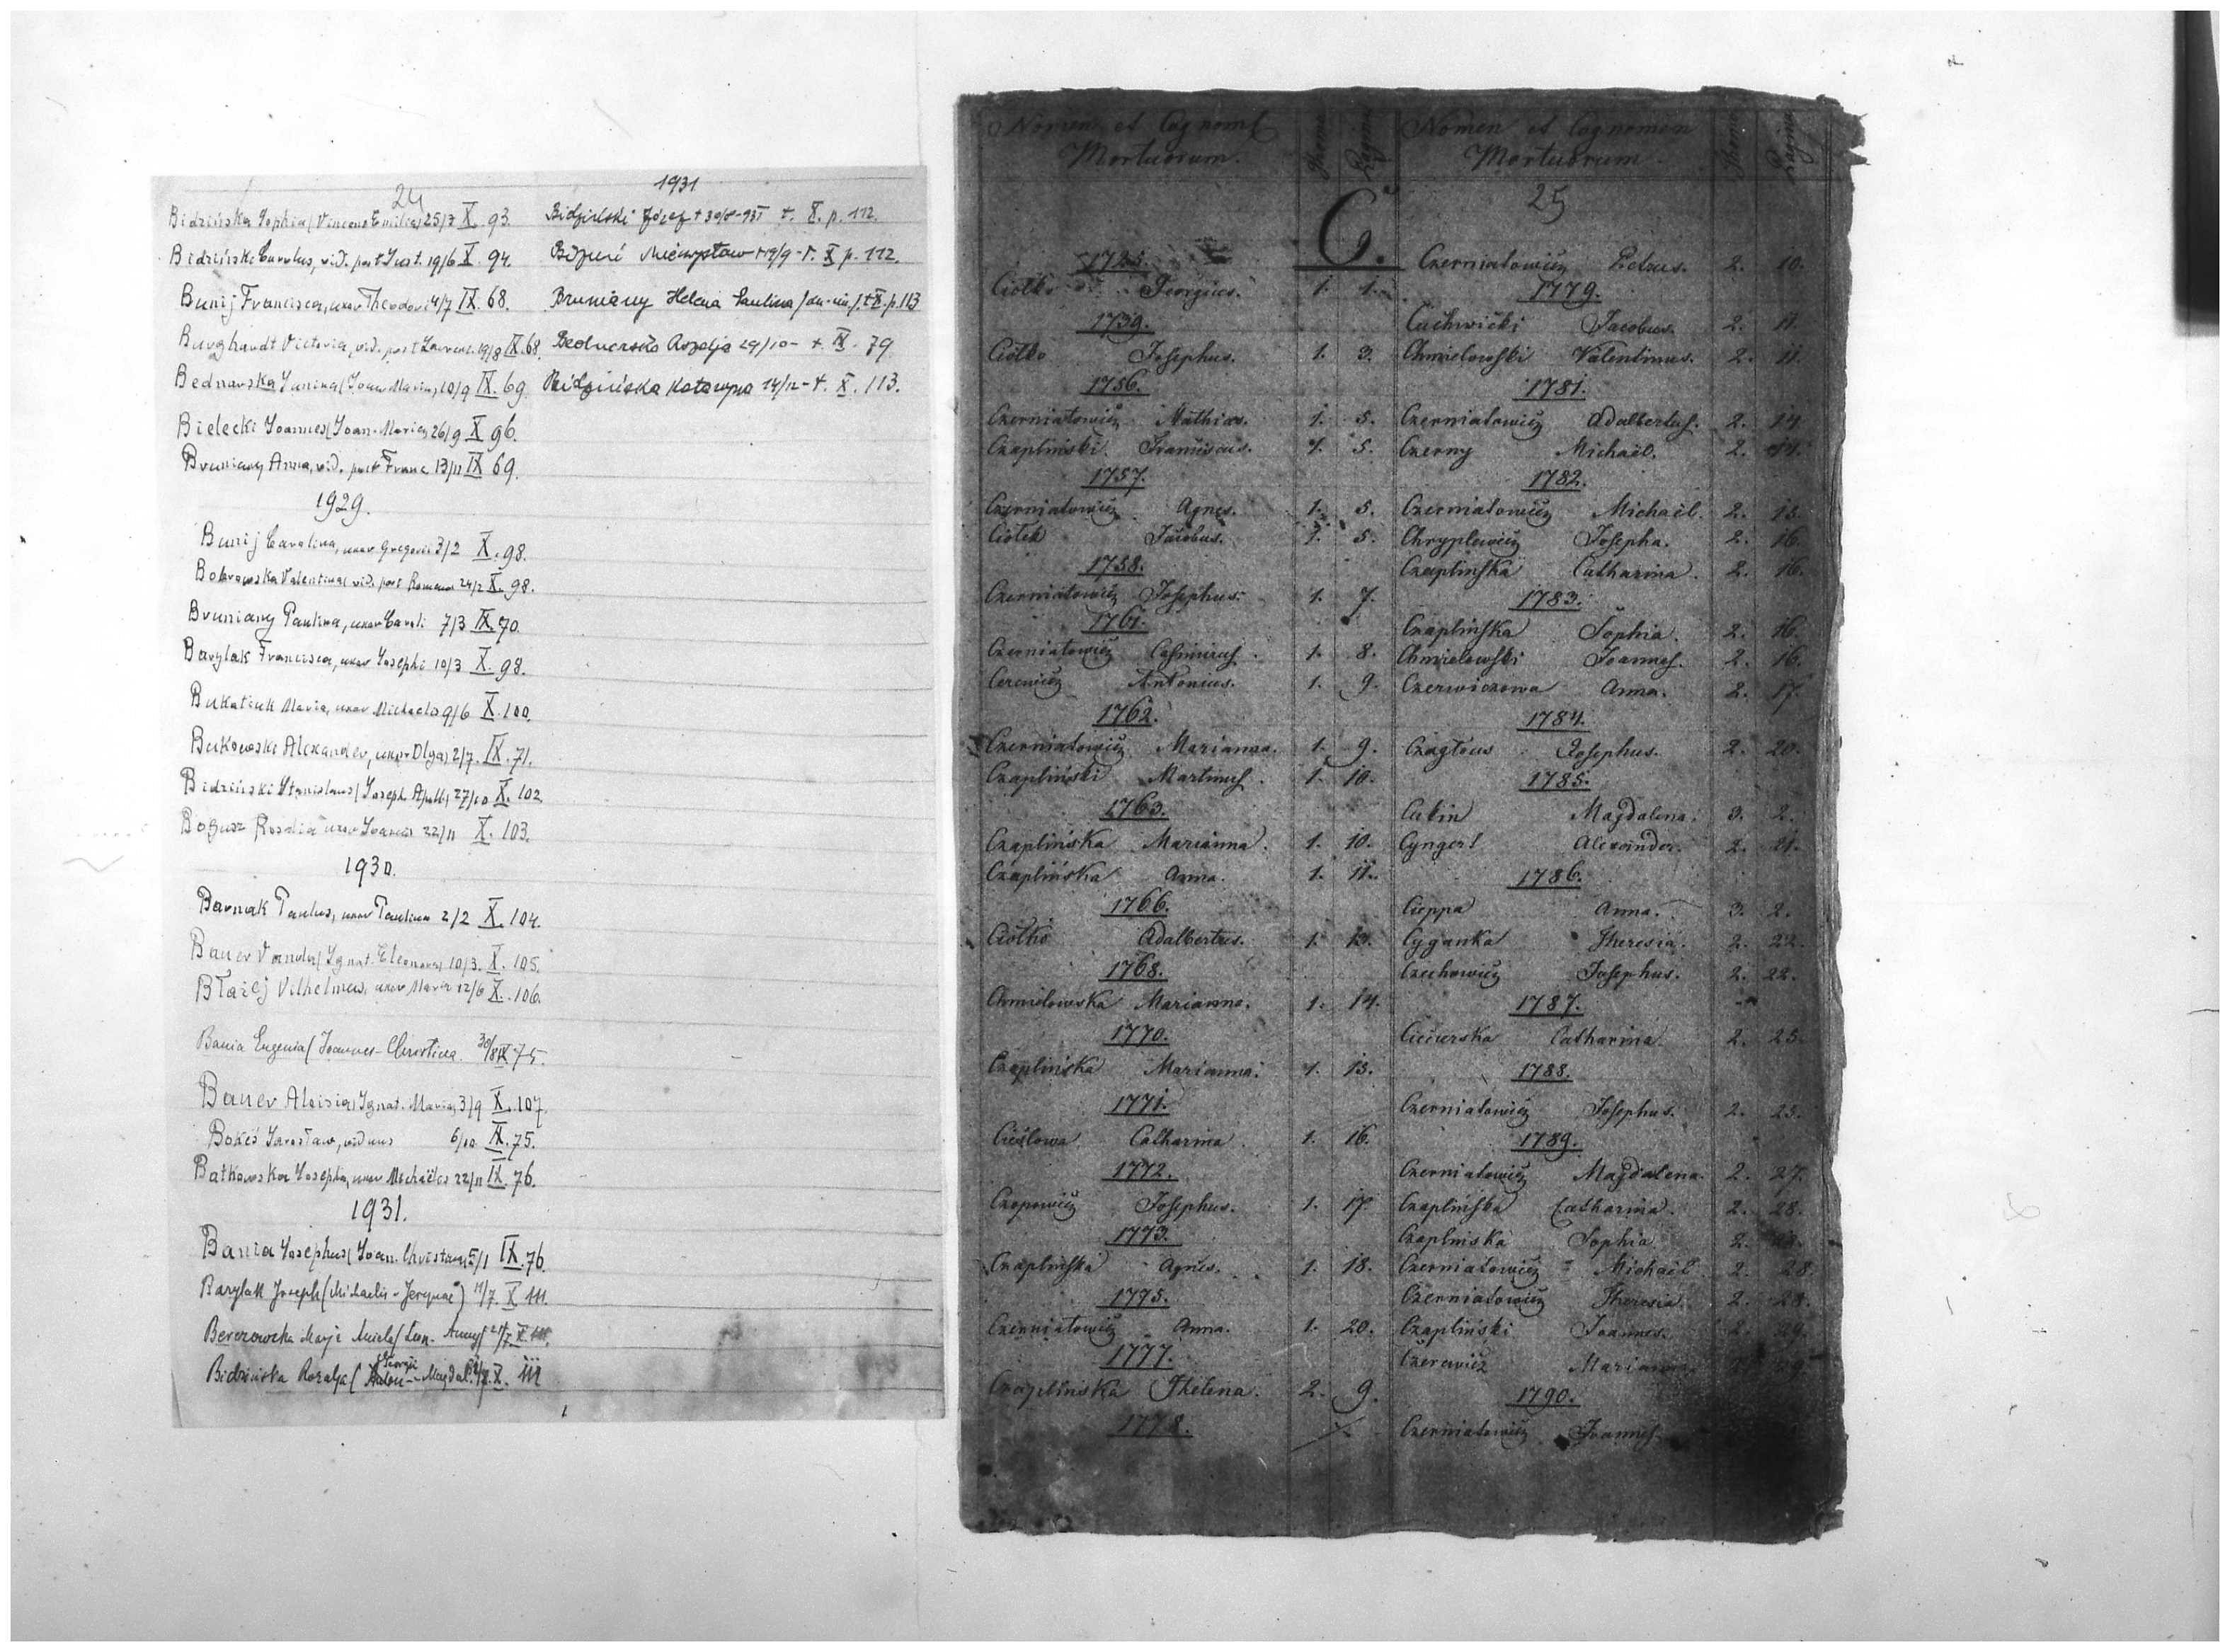 24
Bidzińska Sophia (Vincens Emilia) 25/7 X. 93.
Bidziński Carolus, vid. post Just. 19/6 X. 94.
Bunij Francisca, uxor Theodori 4/7 IX. 68.
Burghardt Victoria, vid. post Laurent. 19/8 IX. 68.
Bednarska Janina (Joan Maria) 10/9 IX. 69.
Bielecki Joannes (Joan. Maria) 26/9 X 96.
Bruniany Anna, vid. post Franc 13/11 IX 69.
1929.
Bunij Carolina, uxor Gregorii 3/2 X. 98.
Bobrowska Valentina vid. post Romano 24/2 X. 98.
Bruniany Paulina, uxor Caroli 7/3 IX. 70.
Barylak Francisca, uxor Josephi 10/3 X. 98.
Bukatiuk Maria, uxor Michaelis 9/6 X. 100.
Bukowski Alexander, uxor Olga 2/7. IX. 71.
Bidziński Stanislaus (Joseph. Apoll.) 27/10 X. 102.
Bogusz Rosalia uxor 22/11 X. 103.
1930.
Barnak Paulus, uxor Paulina 2/2 X. 104.
Bauer Vanda (Ignat. Eleonora) 10/3. X. 105.
Błażej Vilhelmus, uxor Maria 12/6 X. 106.
Bania Eugenia (Joannes - Christina. 30/8 IX 75.
Bauer Aloisia (Ignat. Maria) 3/9 X. 107.
Bokiś Jarosław, viduus 6/10 IX. 75.
Batkowska Josepha, uxor Michaëlis 22/11 IX. 76.
1931.
Bania Josephus (Joan. Christina) 5/1 IX. 76.
Barylak Joseph (Michaelis - ) 17/7. X 111.
Berezowska Marja (Leon. Anny) X. 111.
Bidzińska Rozalja ( Georgii - Magdal. X. 111
1931
Bidziński Józef + t. X. p. 112.
Mieczysław 19/9 - t. X p. 112.
Bruniany Helena Paulina t. X. p. 113
Bednarska Rozalja 29/10 - t. IX. 79.
Bidzińska Katarzyna 14/12 - t. X. 113.
Nomen et Cognomen Mortuorum. Thomus Pagina
C.
1725.
Ciołko Georgius. 1. 1.
1739.
Ciołko Josephus. 1. 3.
1756.
Czerniatowicz Mathias. 1. 5.
Czapliński Franciscus. 1. 5.
1757.
Czerniatowicz Agnes. 1. 5.
Ciołek Jacobus. 1. 5.
1758.
Czerniatowicz Josephus. 1. 7.
1761.
Czerniatowicz Casimirus. 1. 8.
Cerewicz Antonius. 1. 9.
1762.
Czerniatowicz Marianna. 1. 9.
Czapliński Martinus. 1. 10.
1763.
Czaplińska Marianna. 1. 10.
Czaplińska Anna. 1. 11.
1766.
Ciołko Adalbertus. 1. 13.
1768.
Chmielowska Marianna. 1. 14.
1770.
Czaplińska Marianna. 1. 15.
1771.
Cieślowa Catharina. 1. 16.
1772.
Czopowicz Josephus. 1. 17.
1773.
Czaplińska Agnes. 1. 18.
1775.
Czerniatowicz Anna. 1. 20.
1777.
Czaplińska Helena. 2. 9.
1778.
Nomen et Cognomen Mortuorum. Thomus Pagina
25
Czerniatowicz Petrus. 2. 10.
1779.
Cuchwicki Jacobus. 2. 11.
Chmielowski Valentinus. 2. 11.
1781.
Czerniatowicz Adalbertus. 2. 14
Czerny Michaël. 2. 14.
1782.
Czerniatowicz Michaël. 2. 15.
Chryplewicz Josepha. 2. 16.
Czaplińska Catharina. 2. 16.
1783.
Czaplińska Sophia. 2. 16.
Chmielewski Joannes. 2. 16.
Czerwiczowa Anna. 2. 17.
1784.
Josephus. 2. 20.
1785.
Cubin Magdalena. 3. 2.
Cyngert Alexander. 2. 21.
1786.
Cieppa Anna. 3. 2.
Cyganka Theresia. 2. 22.
Czechowicz Josephus. 2. 22.
1787.
Catharina. 2. 25.
1788.
Czerniatowicz Josephus. 2. 25.
1789.
Czerniatowicz Magdalena. 2. 27.
Czaplińska Catharina. 2. 28.
Czaplinska Sophia. 2. 28.
Czerniatowicz Michaël 2. 28.
Czerniatowicz Theresia. 2. 28.
Czapliński Joannes.
Czerewicz Marianna
1790.
Czerniatowicz Joannes.